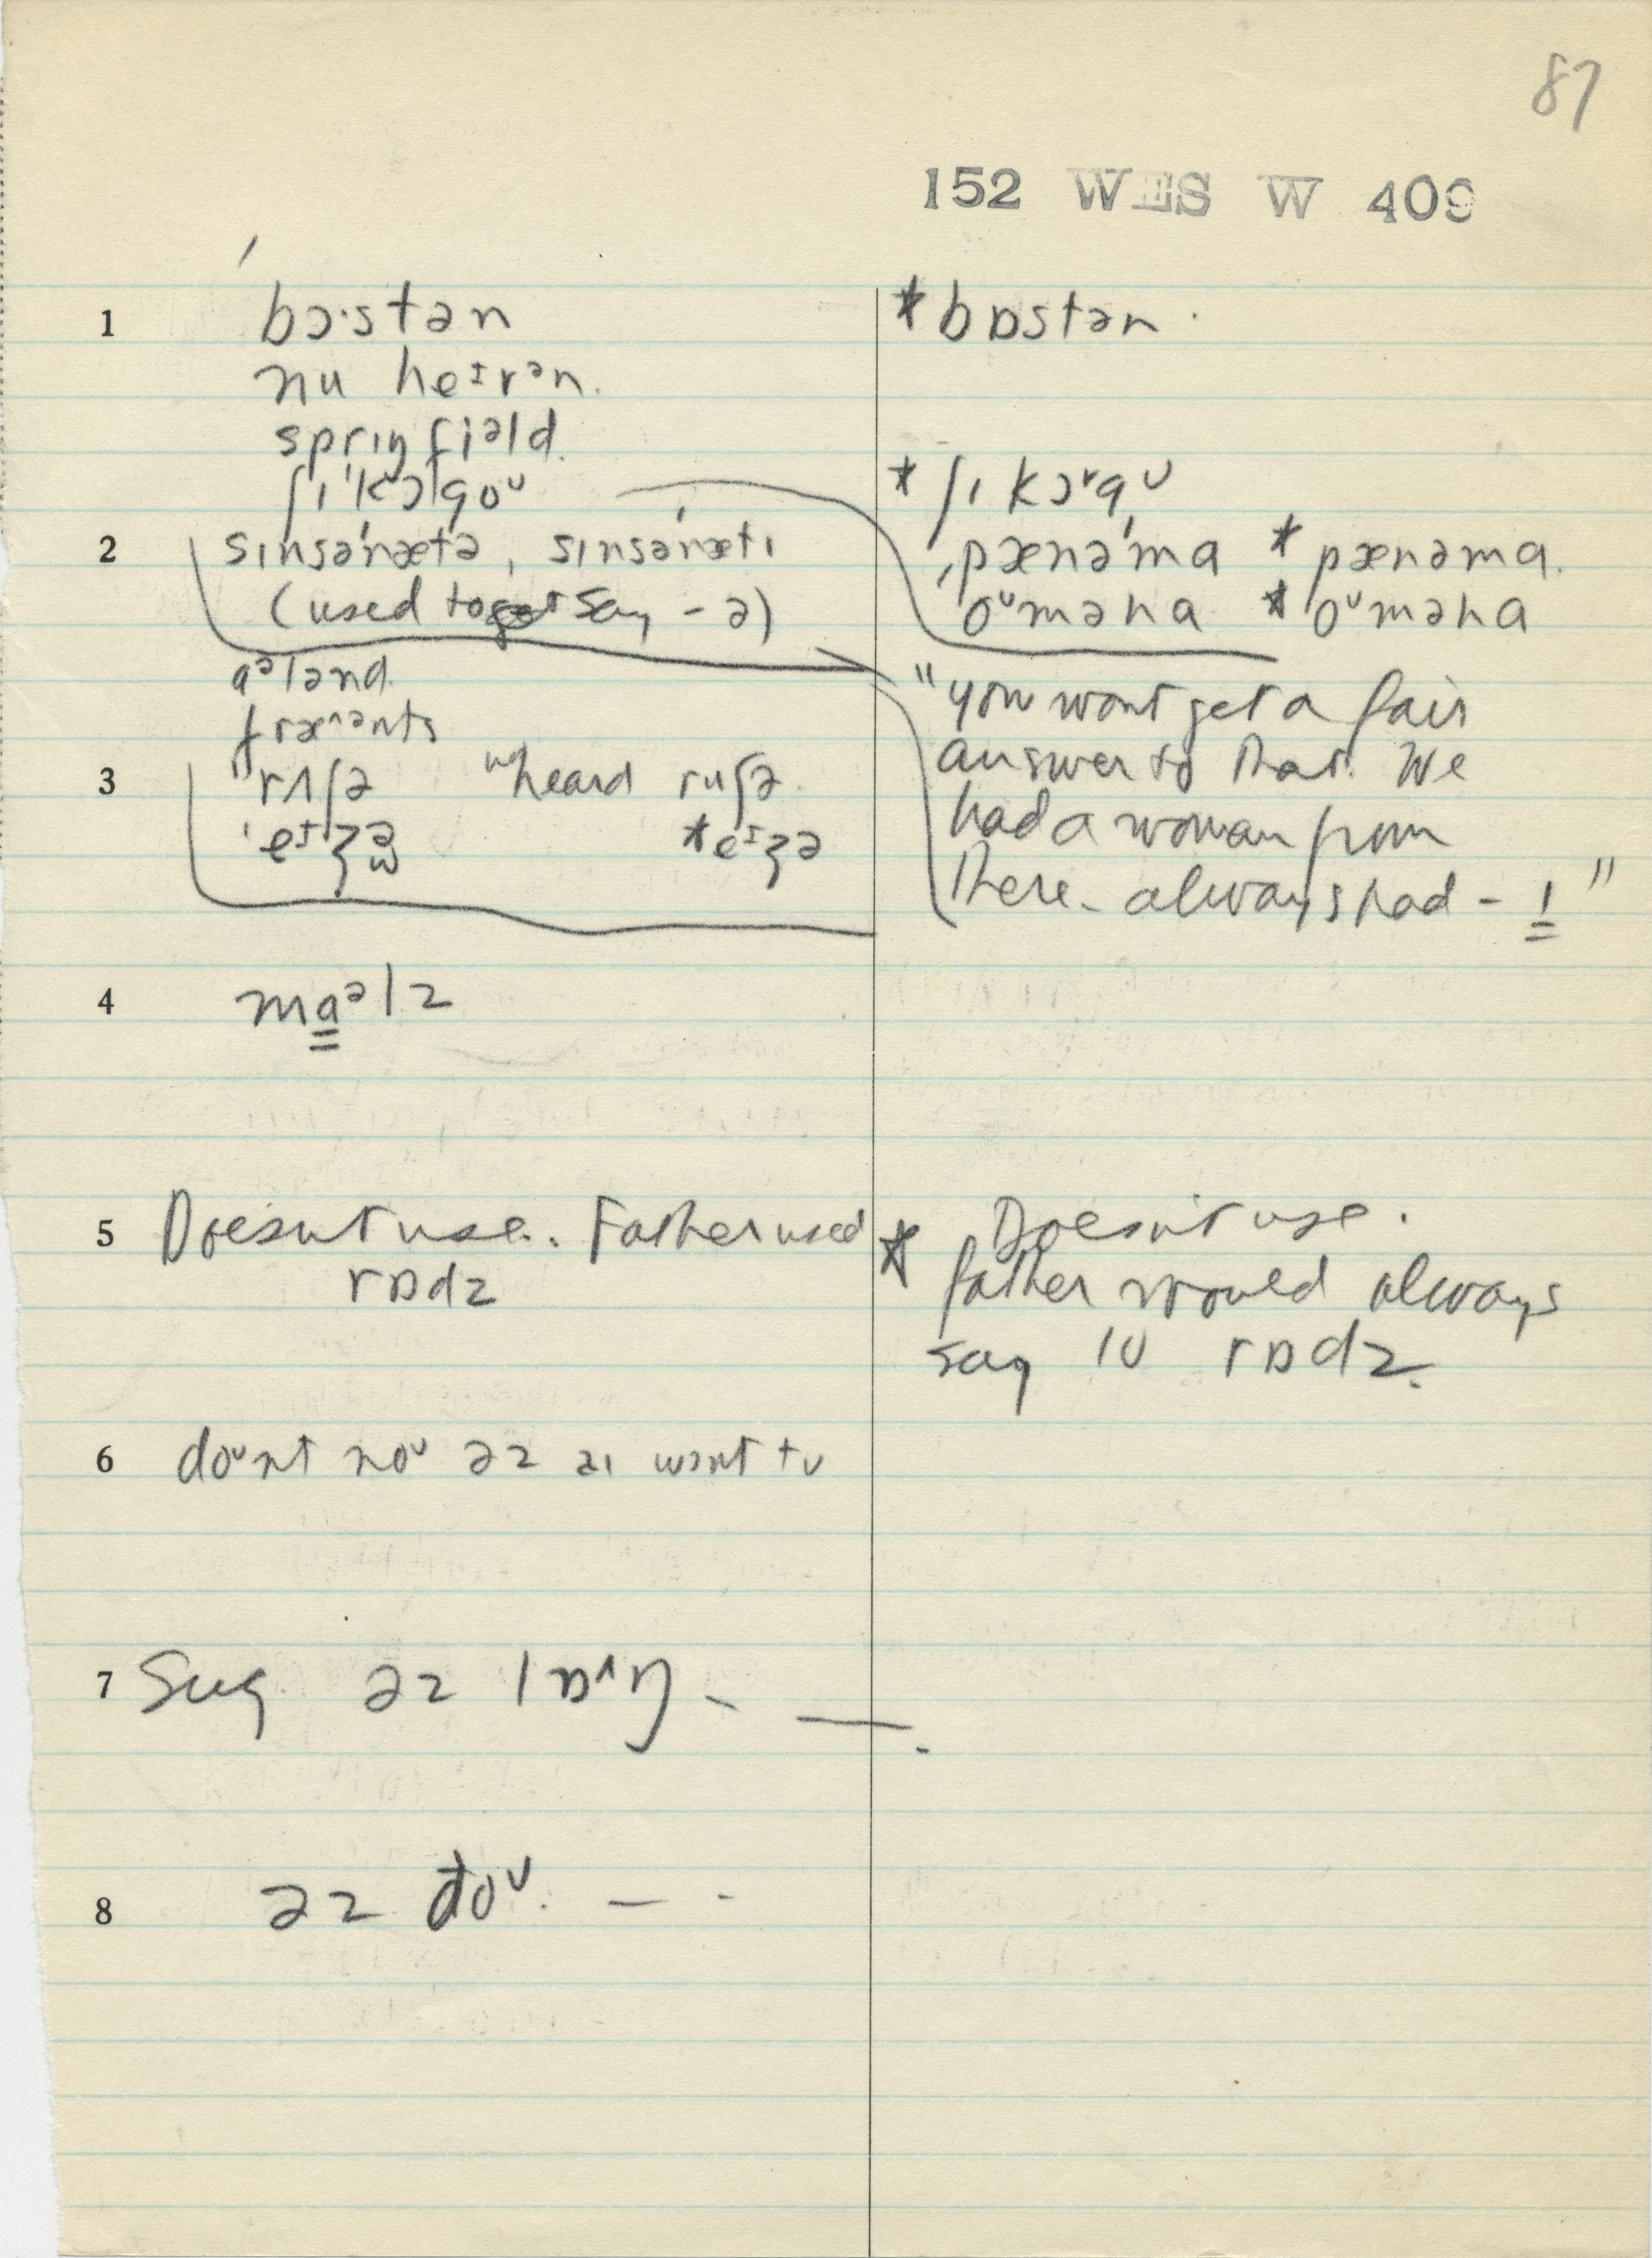 87
152 WES W 409
1 bɔ·stən
nu heᶦvᵊn.
sprɪŋfiᵊld.
ʃɪˈkɔgoᵘ
2 sɪnsəˈnætə, sɪnsəˈnætɪ
(used to say - ə)
aᵊlənd.
3 ˈrʌʃə heard ruʃə.
ˈeᶦʒə *eᶦʒə
* bɒstən.
* ʃɪkɔʳgᵁ
ˌpænəˈma * pænəma.
oᵁməha * oᵁməha
"you wont get a fair
answer to that. We
had a woman from
there - always had - ! "
4 maᵊlz
5 Doesn't use. Father used
rɒdz
* Doesn't use.
father would always
say 10 rɒdz.
6 doᵁnt noᵁ əz aɪ wɒnt tᴜ
7 Sug əz lɒˆŋ - —.
8 əz ðoᵁ. — -